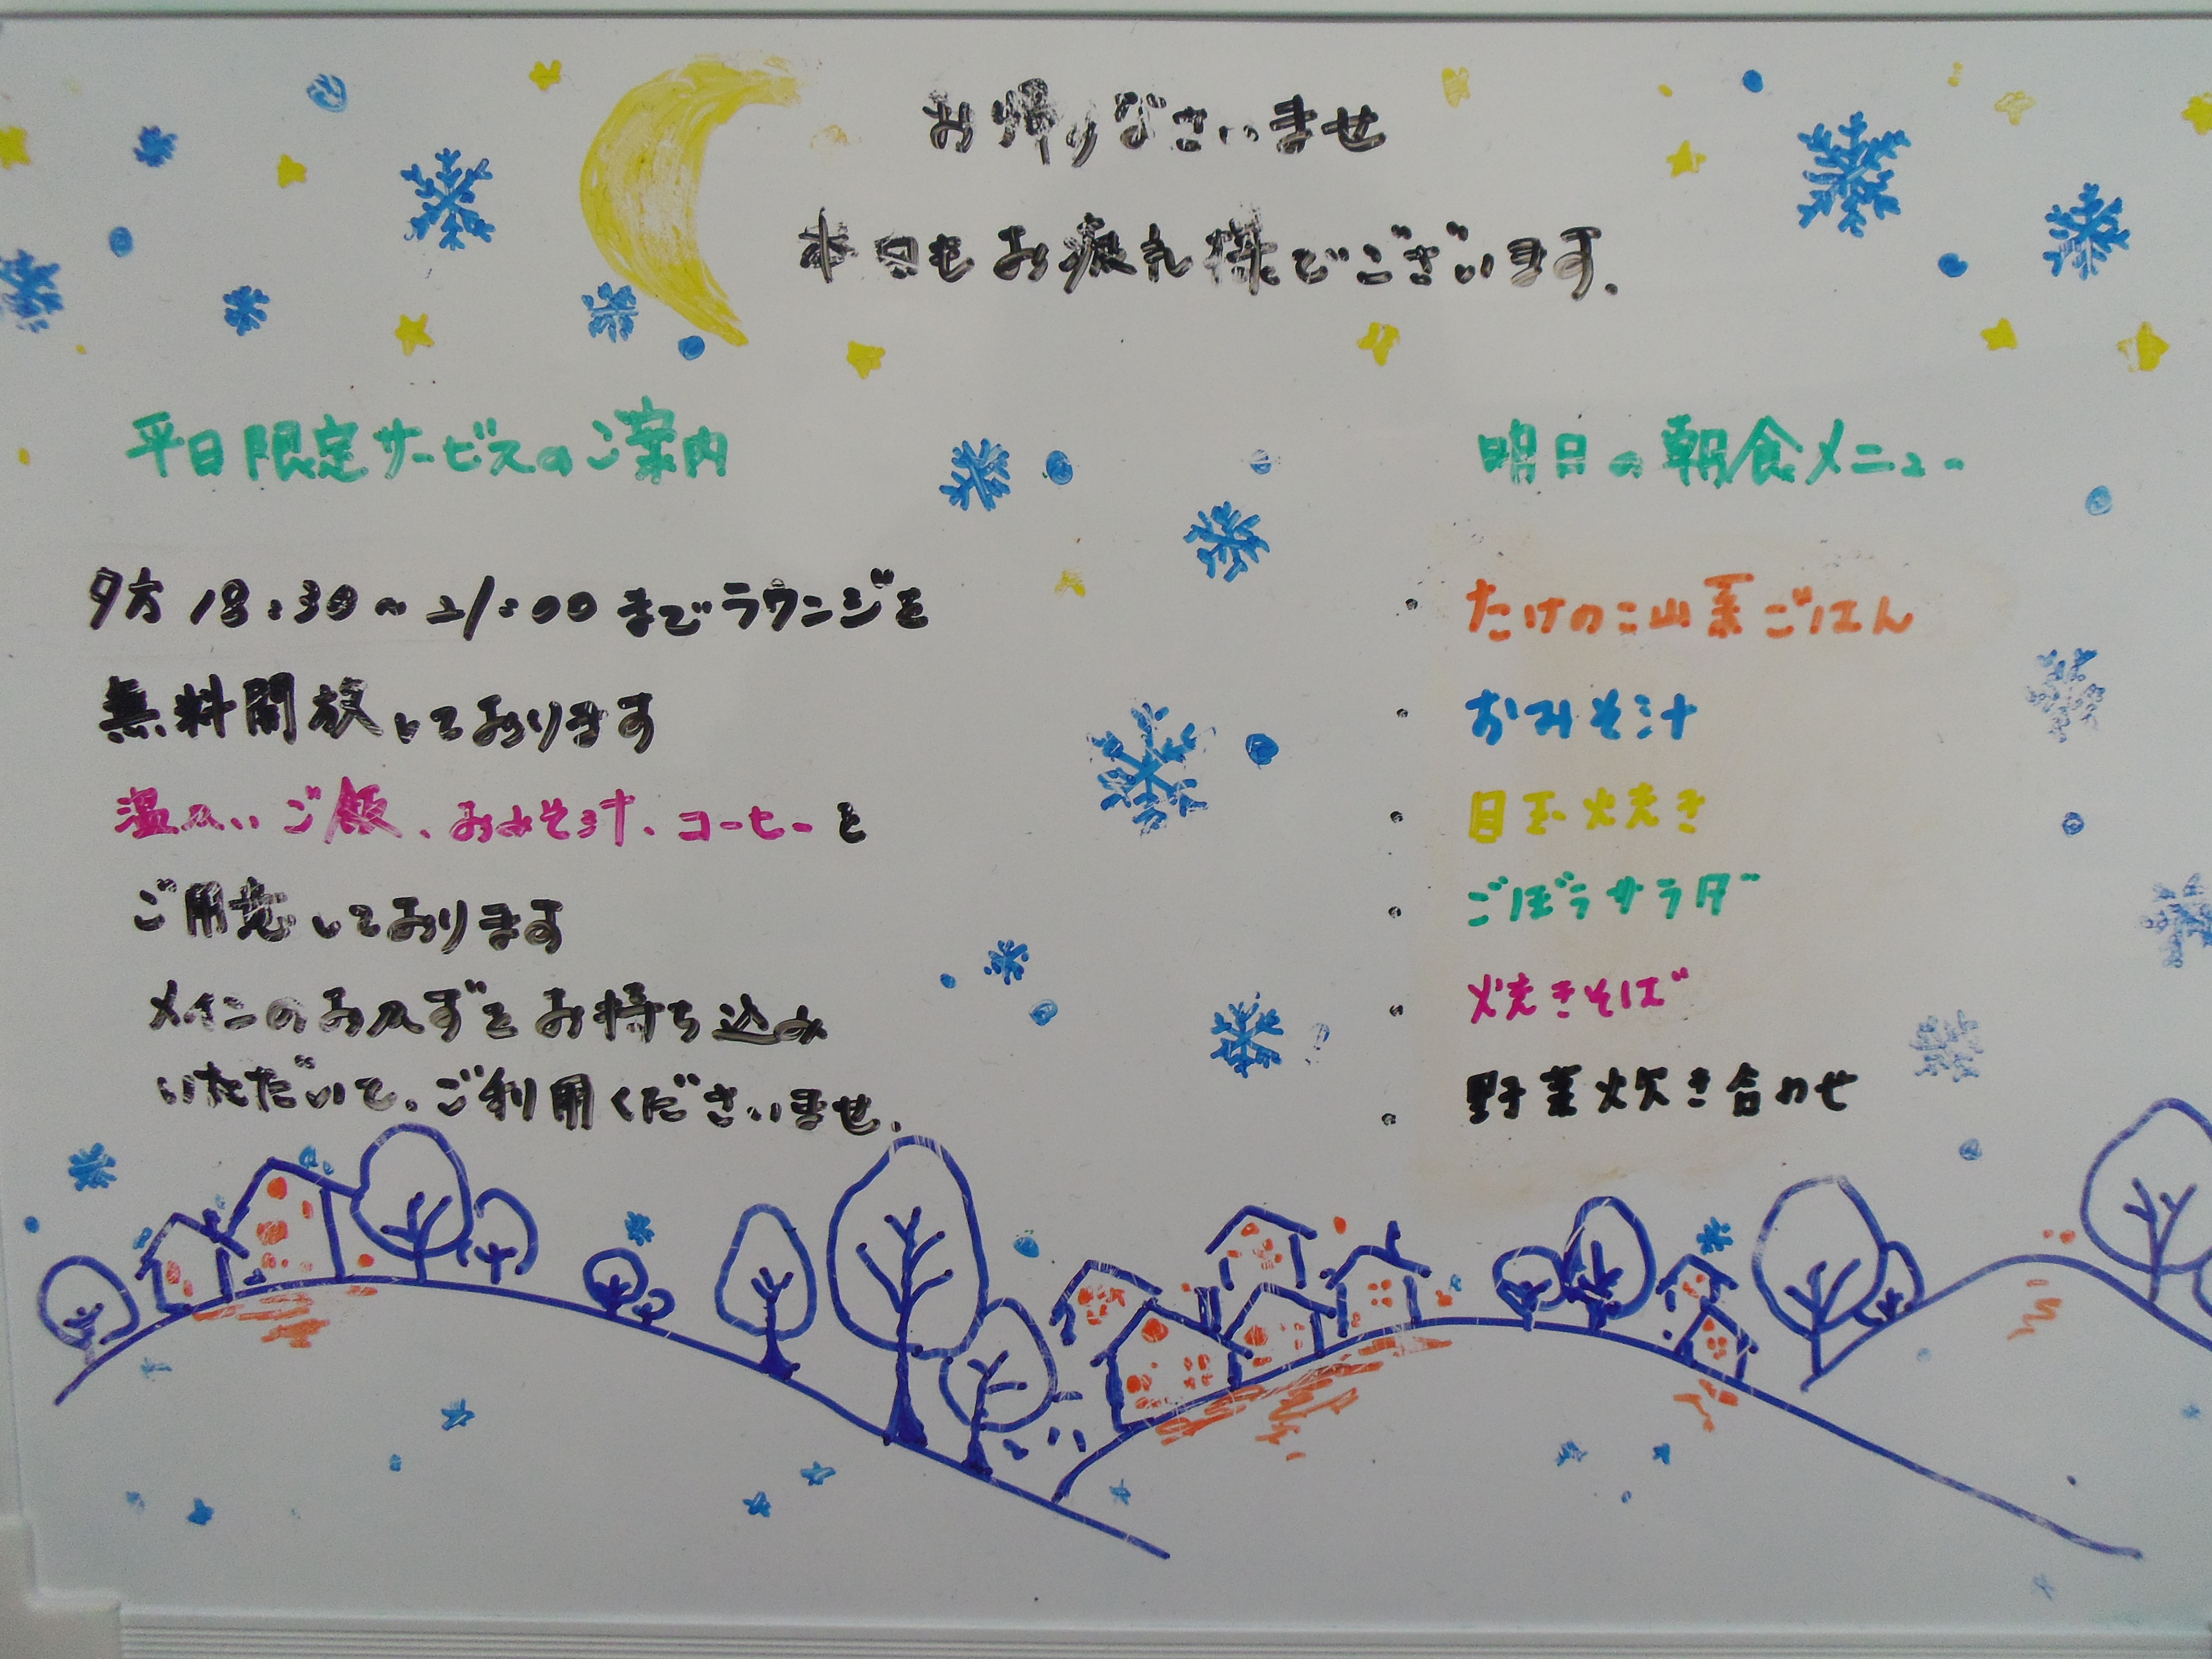 お帰りなさいませ
本日もお疲れ様でございます.
平日限定サービスのご案内
夕方 18:30~21:00までラウンジを
無料開放しております
温かいご飯、おみそ汁、コーヒーを
ご用意しております
メインのおかずをお持ち込み
いただいて、ご利用くださいませ.
明日の朝食メニュー
・たけのこ山菜ごはん
・おみそ汁
・目玉焼き
・ごぼうサラダ
・焼きそば
・野菜炊き合わせ